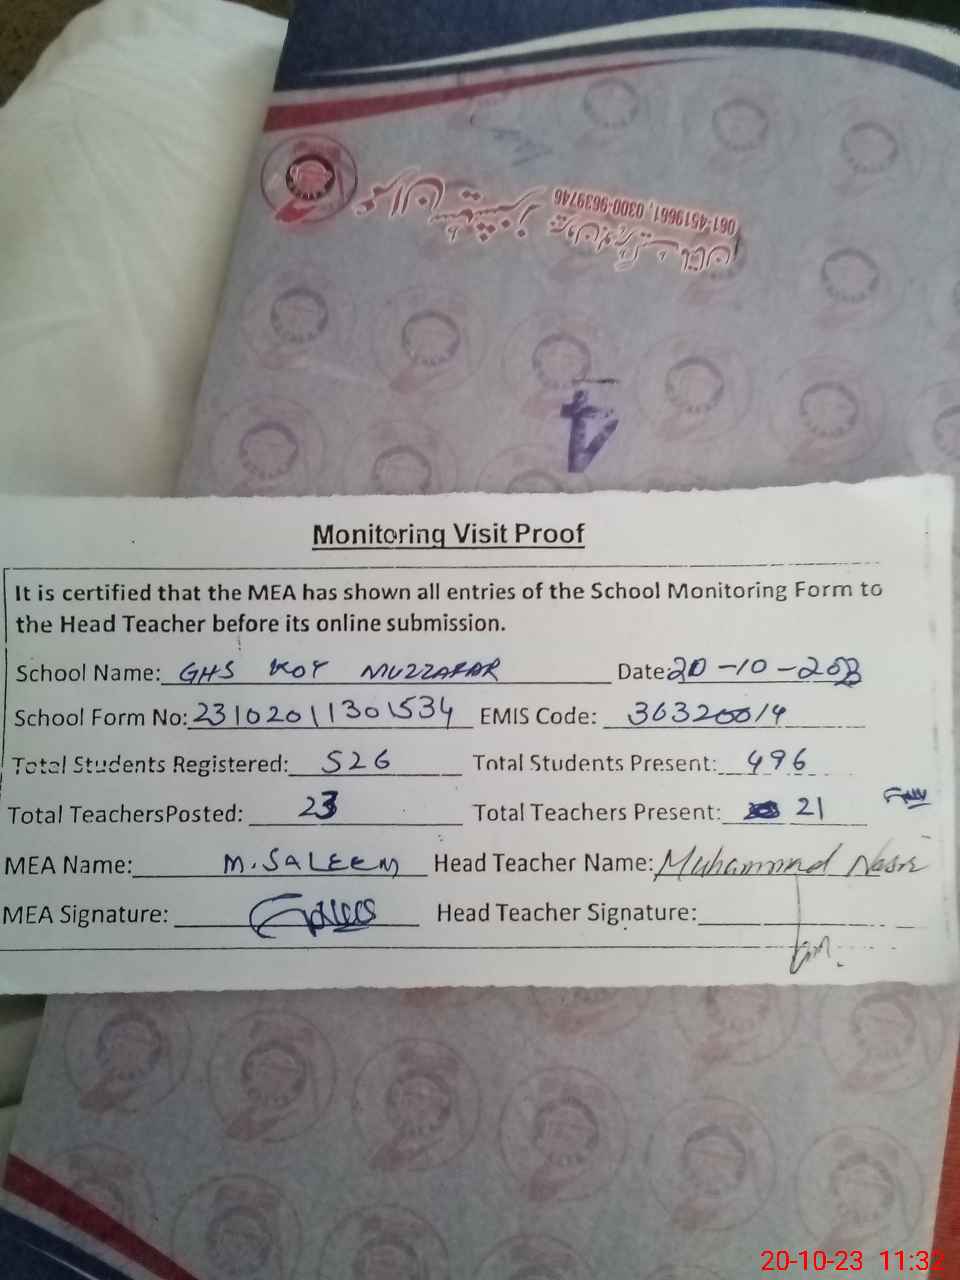 061-4519661, 0300-9639746
4
Monitoring Visit Proof
It is certified that the MEA has shown all entries of the School Monitoring Form to
the Head Teacher before its online submission.
School Name: GHS KOT MUZZAFAR Date: 20-10-2023
School Form No: 23102011301534 EMIS Code: 36320014
Total Students Registered: 526 Total Students Present: 496
Total TeachersPosted: 23 Total Teachers Present: 21
MEA Name: M. SALEEM Head Teacher Name: Muhammad Nasir
MEA Signature: Head Teacher Signature:
20-10-23 11:32